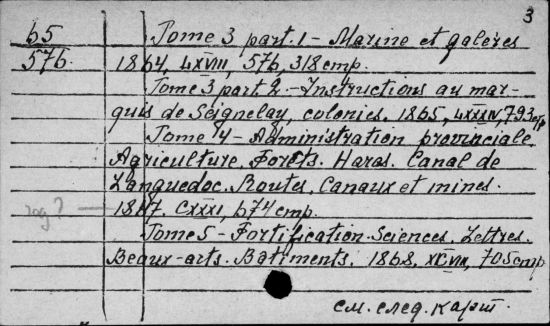 3
65 Tome 3 part. 1 - Marine et galères
576. 1864, LXVIII, 576, 318 стр.
Tome 3 part 2. - Instructions au mar-
quis de Seignelay, colonies. 1865, LXXXIV, 793 стр
Tome 4 - Administration provinciale.
Agriculture, Forêts. Haras. Canal de
Languedoc. Routes, Canaux et mines.
год? - 1867. CXXXI, 674 стр.
Tome 5 - Fortification. Sciences, Lettres.
Beaux-arts. Bâtiments. 1868, XCVIII, 705 стр
см. след. карт.